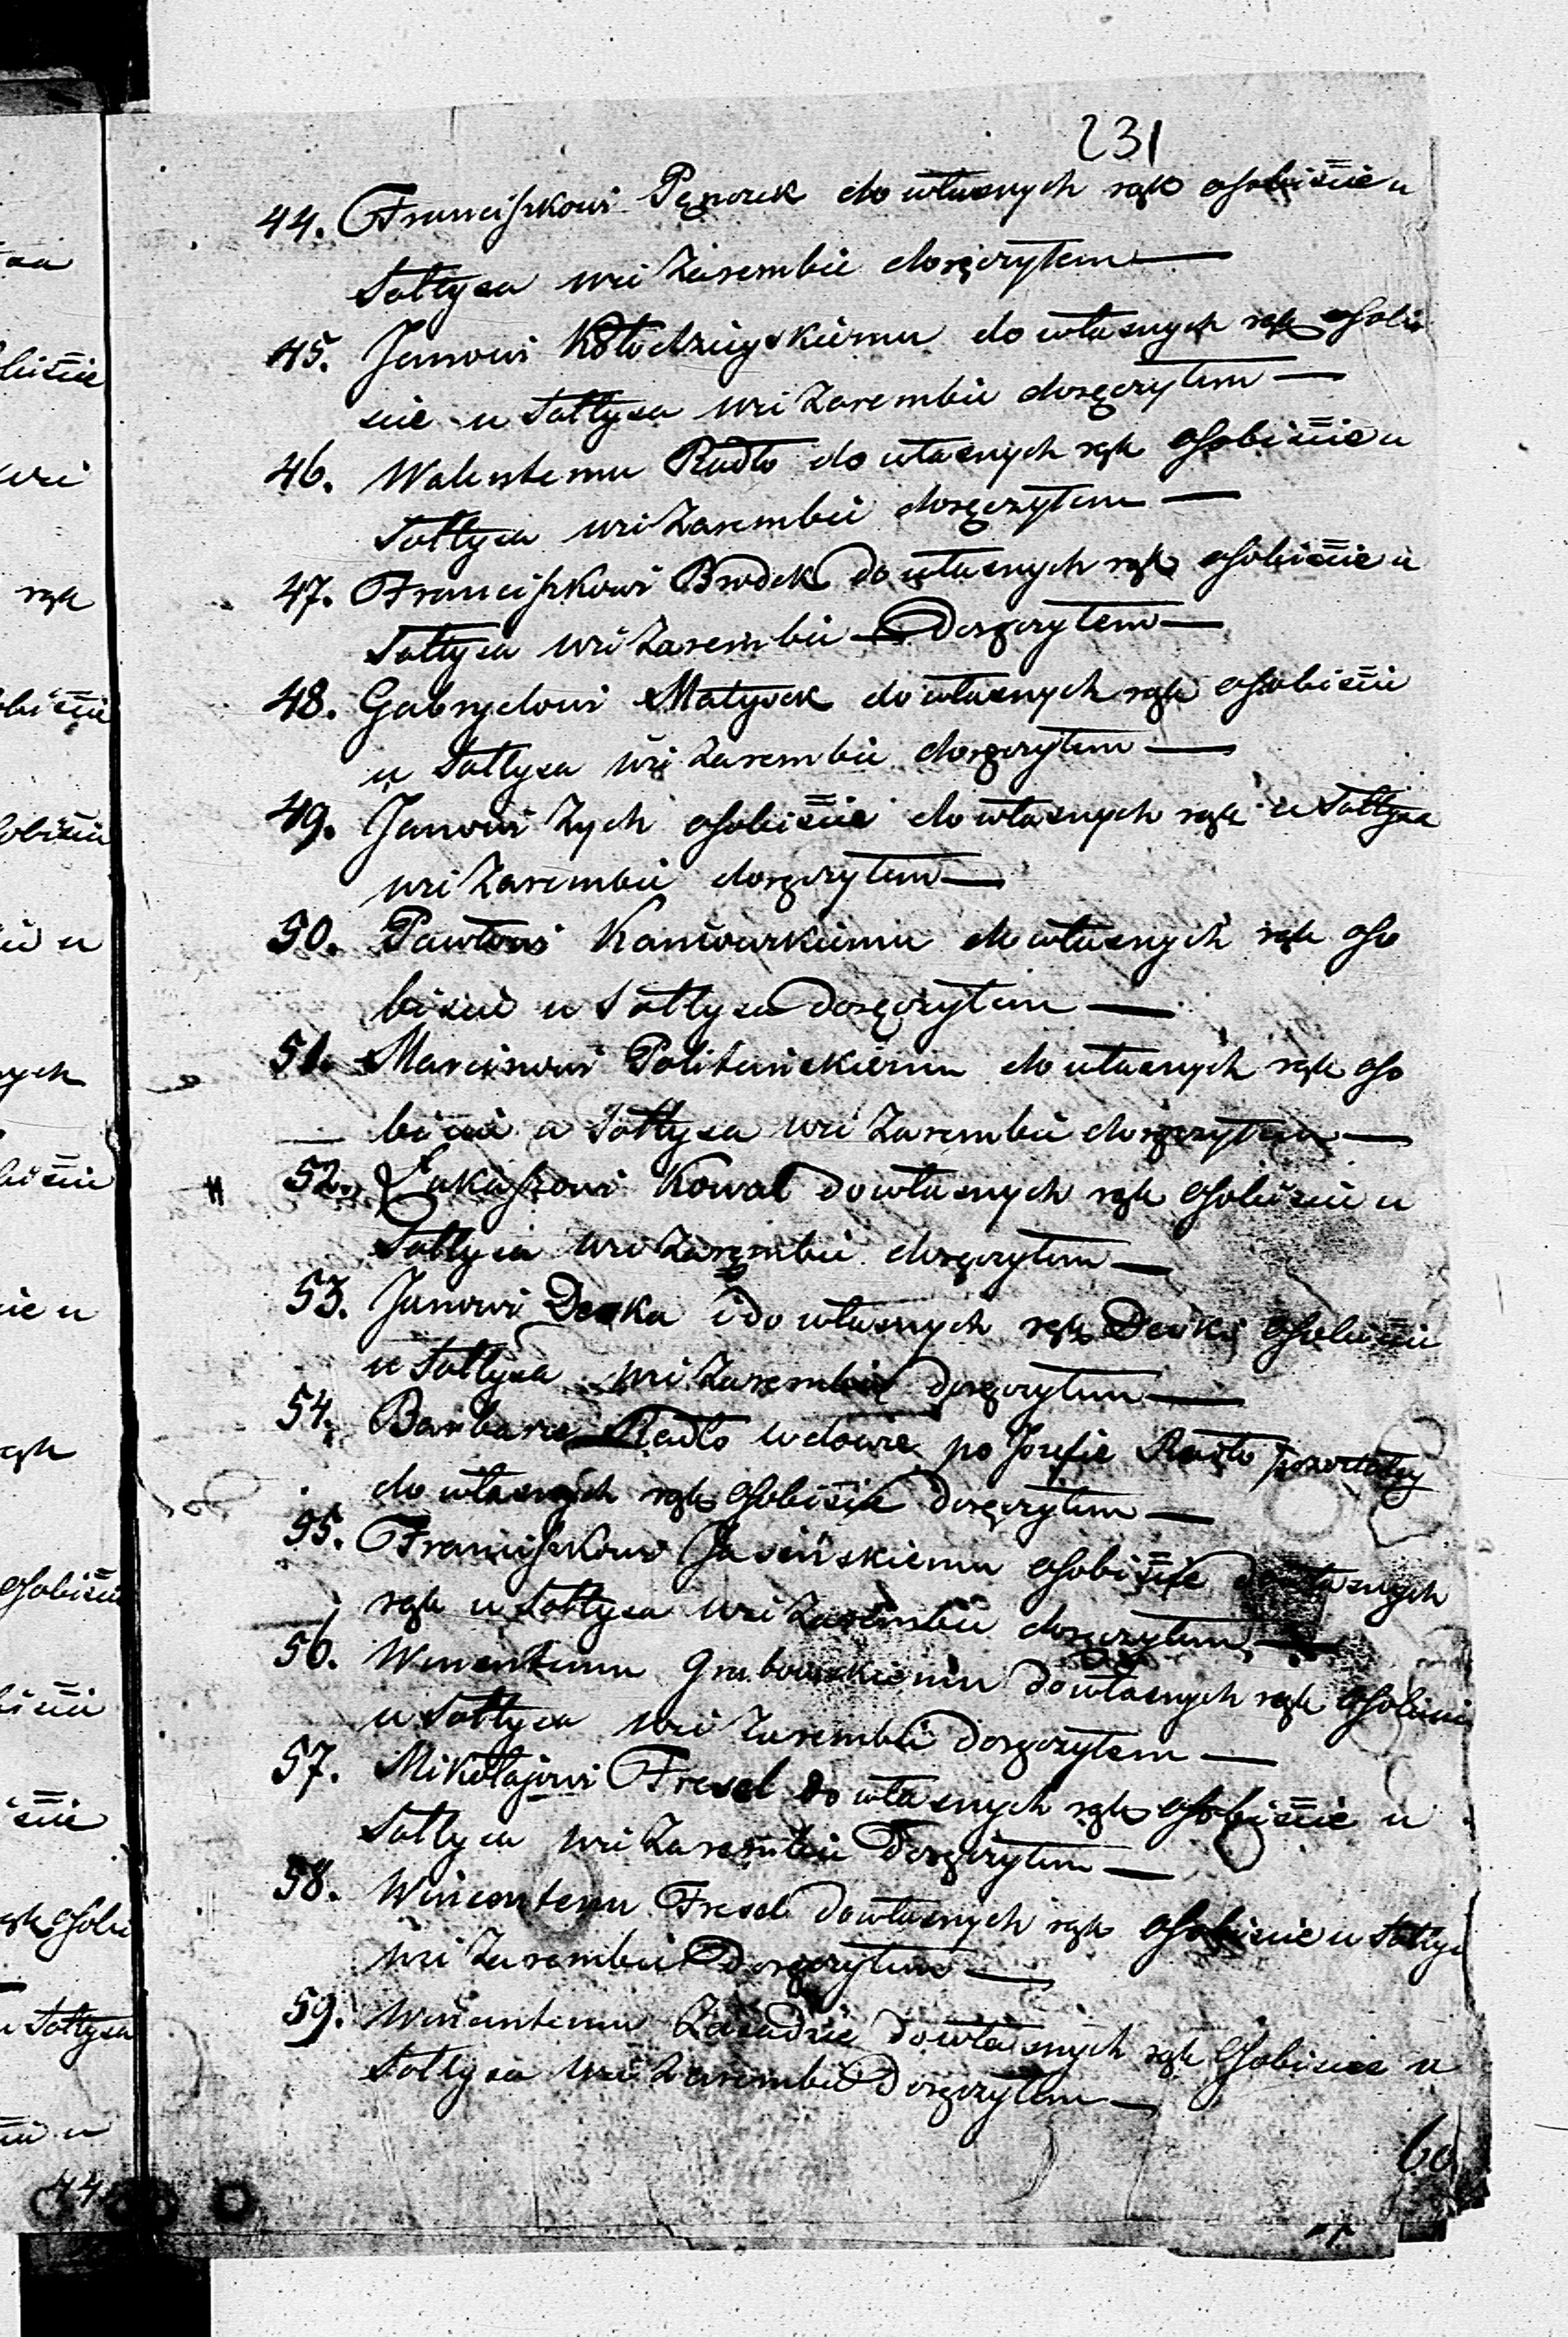 231
44. Franciszkowi Pęnczek do własnych rąk osobiście u
Sołtysa wsi Zarembie doręczyłem —
45. Janowi Kołodzieyskiemu do własnych rąk osobi
ście u Sołtysa wsi Zarembie doręczyłem —
46. Walentemu Radło do własnych rąk osobiście u
Sołtysa wsi Zarembie doręczyłem —
47. Franciszkowi Brodek do własnych rąk osobiście u
Sołtysa wsi Zarembie doręczyłem —
48. Gabryelowi Matysek do własnych rąk osobiście
u Sołtysa wsi Zarembie doręczyłem —
49. Janowi Zych osobiście do własnych rąk u Sołtysa
wsi Zarembie doręczyłem —
50. Pawłowi do własnych rąk oso
biście u Sołtysa doręczyłem —
51. Marcinowi do własnych rąk oso
biście u Sołtysa wsi Zarembie doręczyłem —
52. Łukaszowi Kowal do własnych rąk osobiście u
Sołtysa wsi Zarembie doręczyłem —
53. Janowi Deska i do własnych rąk osobiście
u Sołtysa wsi Zarembie doręczyłem —
54. Barbarze Radło wdowie po Józefie Radło pozostałey
do własnych rąk osobiście doręczyłem —
55. Franciszkowi Jasińskiemu osobiście do własnych
rąk u Sołtysa wsi Zarembie doręczyłem —
56. Wincentemu Grabowskiemu do własnych rąk osobiście
u Sołtysa wsi Zarembie doręczyłem —
57. Mikołajowi Fresel do własnych rąk osobiście u
Sołtysa wsi Zarembie doręczyłem —
58. Wincentemu Fresel do własnych rąk osobiście u Sołtysa
wsi Zarembie doręczyłem —
59. Wincentemu Zasadzie do własnych rąk osobiście u
Sołtysa wsi Zarembie doręczyłem —
60